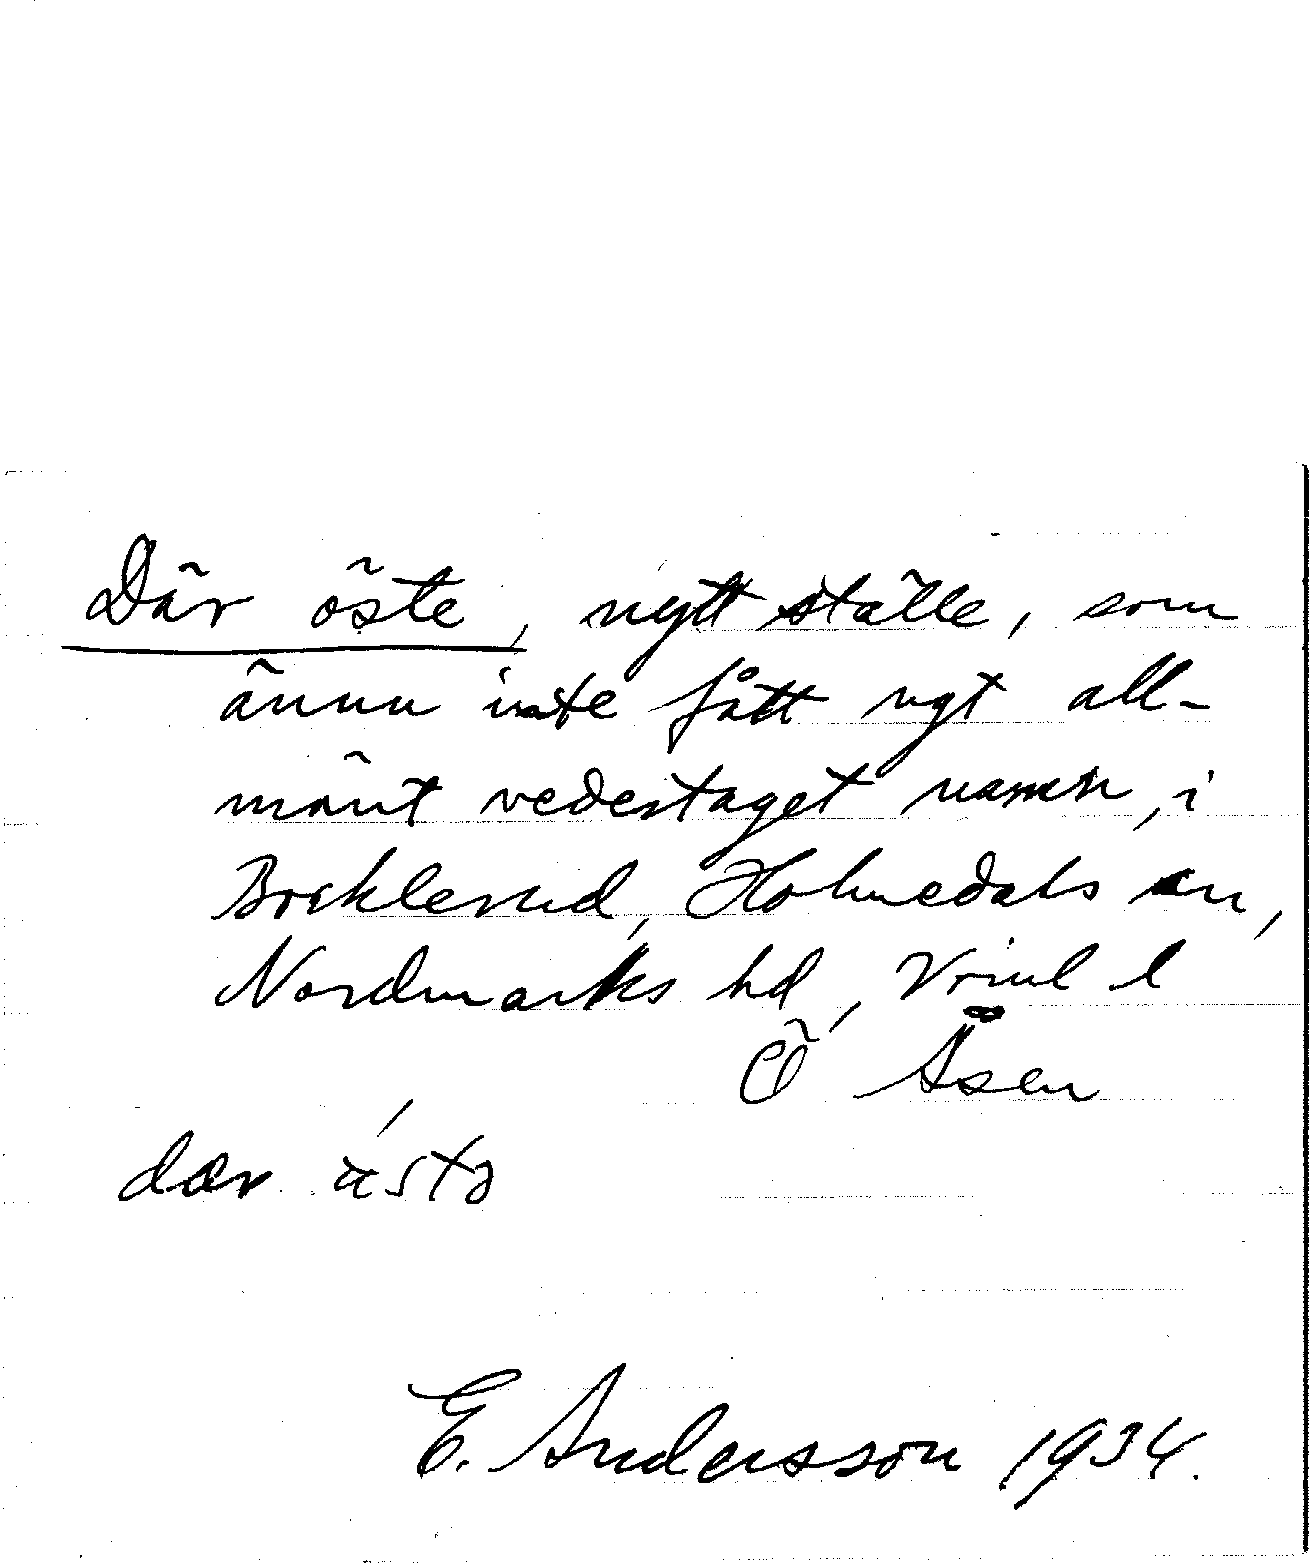 Där öste, nytt ställe, som
ännu inte fått nyt all-
mänt vedertaget namn, i
Bocklerud, Holmedals sn,
Nordmarks hd, Vrml l
Ö Åsen
E. Andersson 1934.